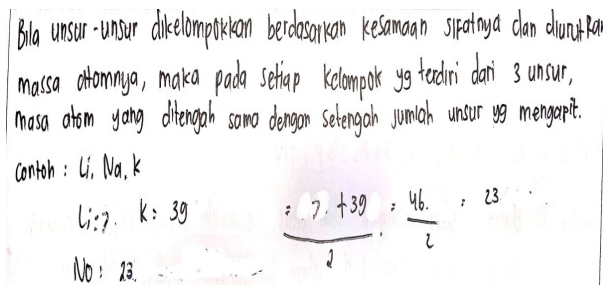 Bila unsur-unsur dikelompokkan berdasarkan kesamaan sifatnya dan diurutkan
massa atomnya, maka pada setiap kelompok yg terdiri dari 3 unsur,
masa atom yang ditengah sama dengan setengah jumlah unsur yg mengapit.
Contoh : Li, Na, K
Li: 7. K: 39 = 7 + 39 / 2 = 46 / 2 = 23
Na: 23.